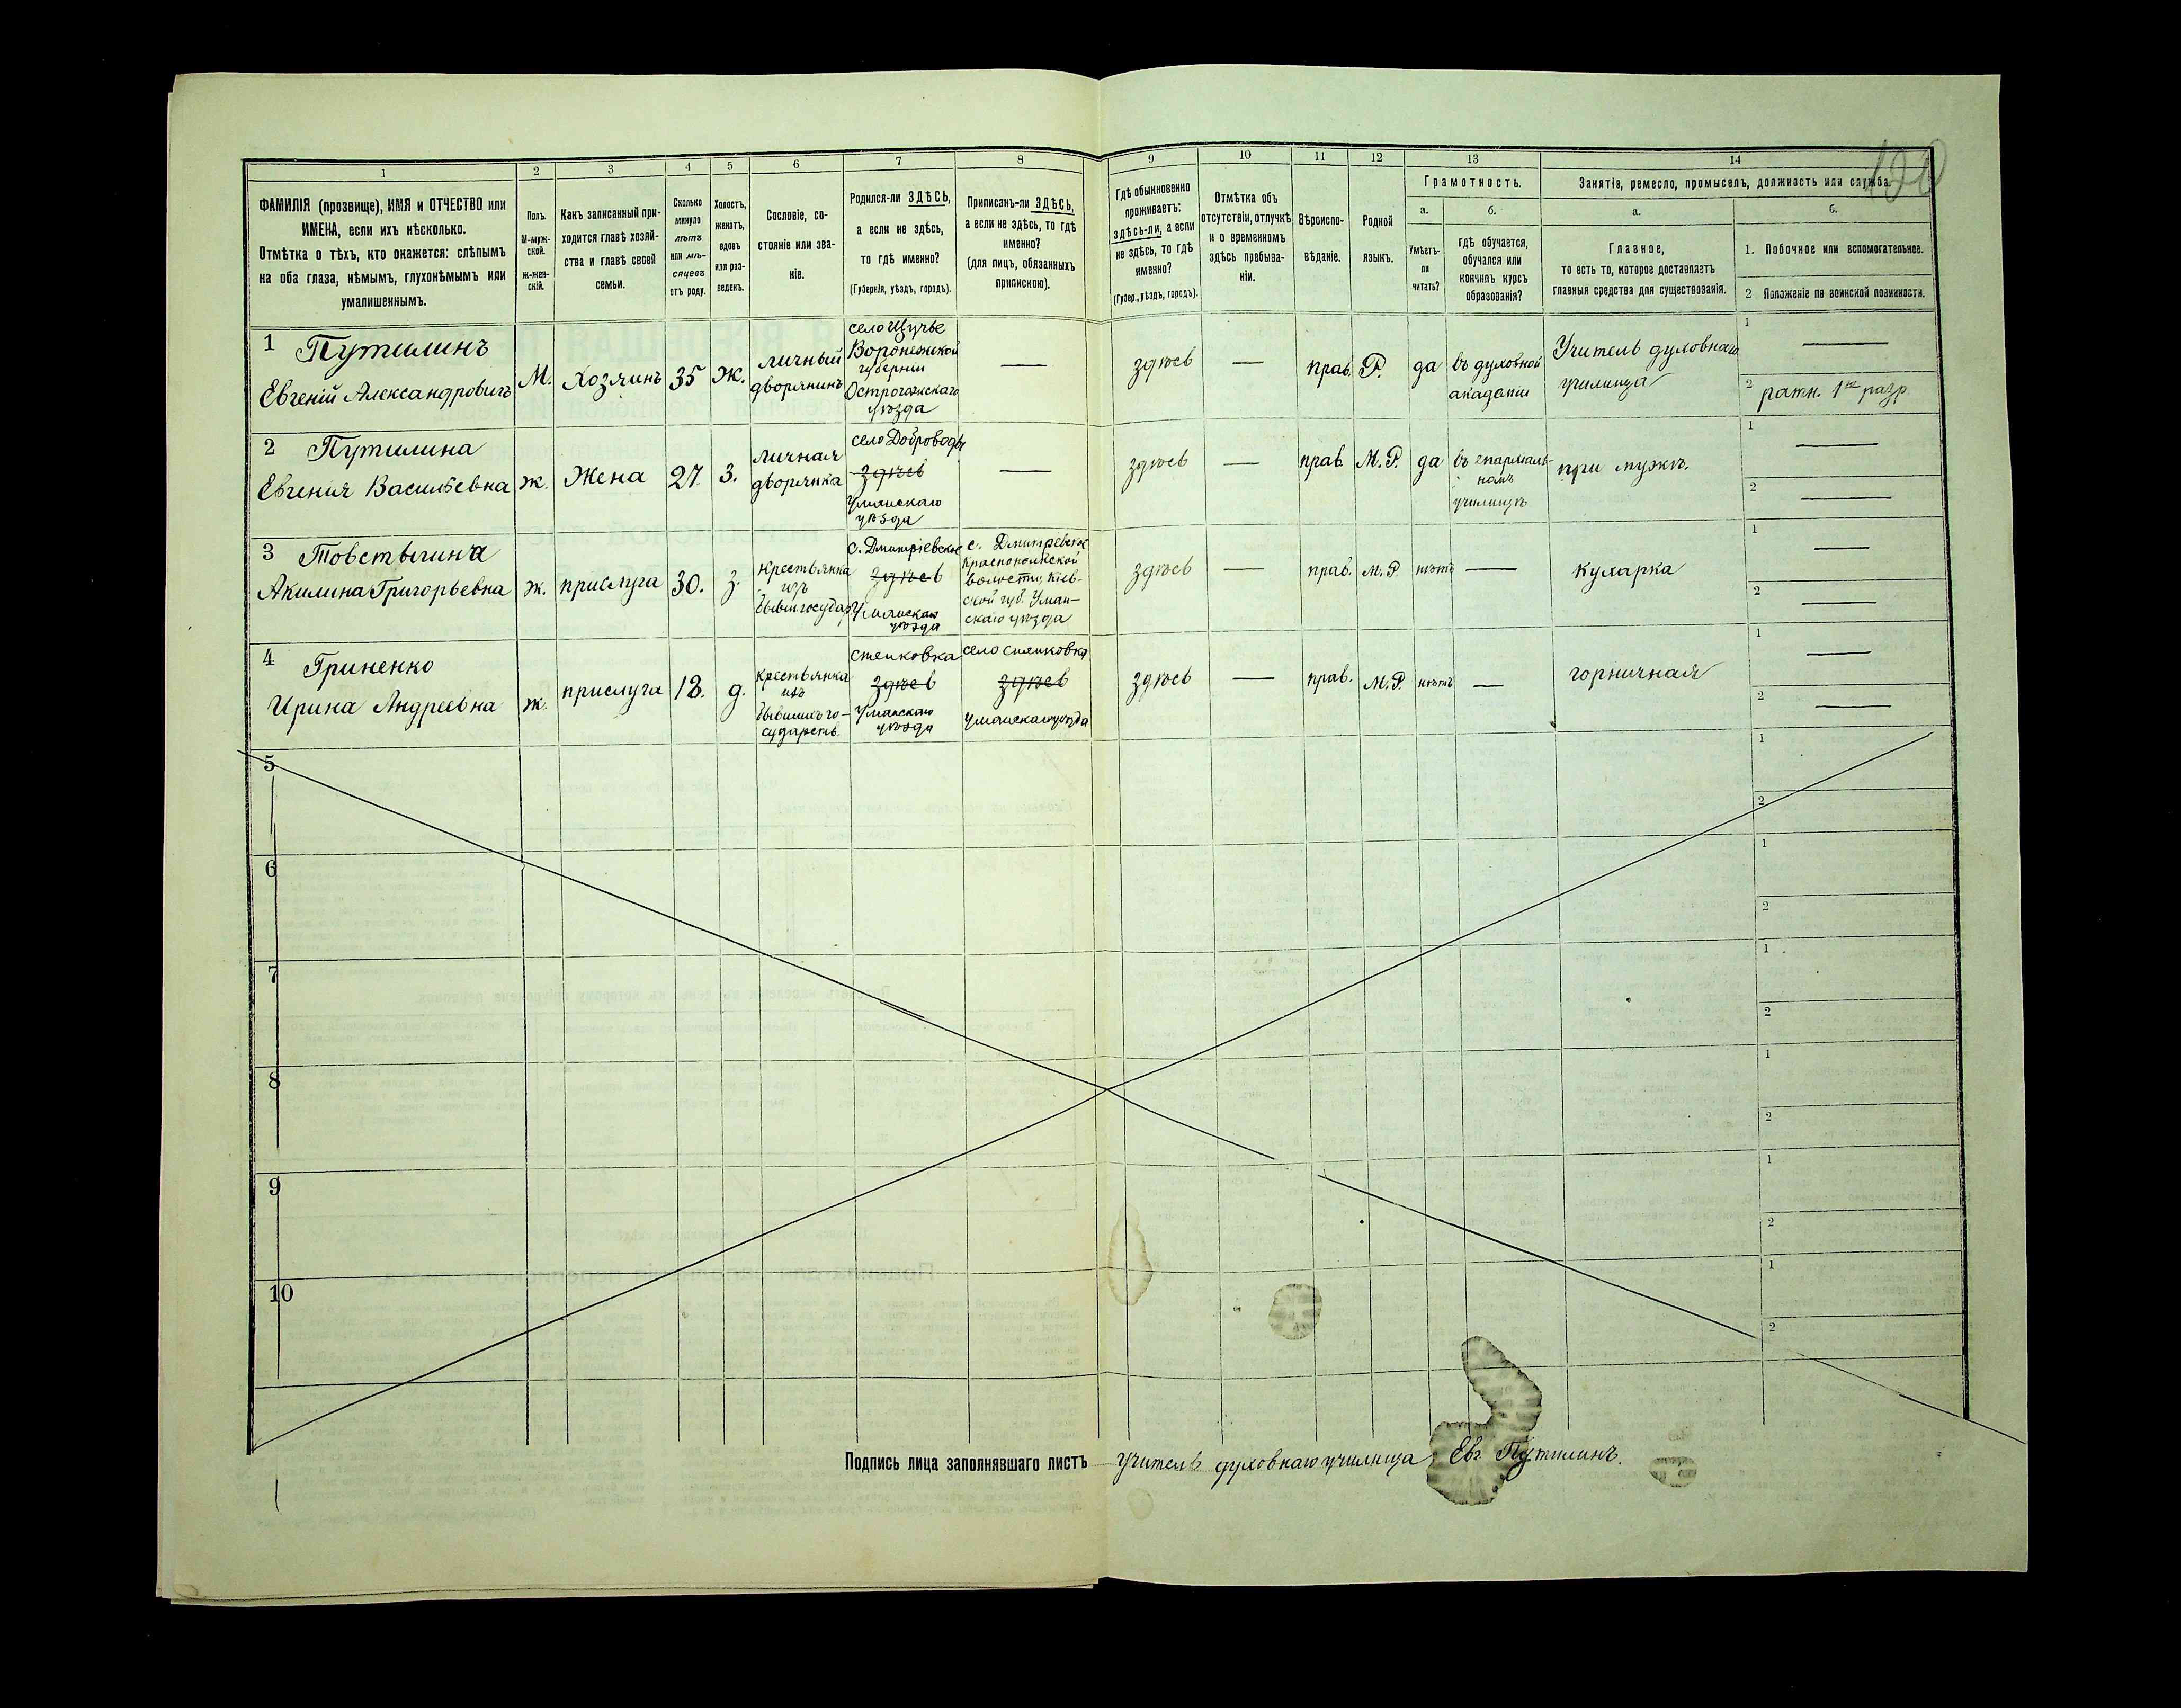 120
1 2 3 4 5 6 7 8 9 10 11 12 13 14
ФАМИЛІЯ (прозвище), ИМЯ и ОТЧЕСТВО или
ИМЕНА, если ихъ нѣсколько.
Отмѣтка о тѣхъ, кто окажется: слѣпымъ
на оба глаза, нѣмымъ, глухонѣмымъ или
умалишеннымъ.
Полъ.
М-муж-
ской.
ж-жен-
скій.
Какъ записанный при-
ходится главѣ хозяй-
ства и главѣ своей
семьи.
Сколько
минуло
лѣтъ
или мѣ-
сяцевъ
отъ роду.
Холостъ,
женатъ,
вдовъ
или раз-
веденъ.
Сословіе, со-
стояніе или зва-
ніе.
Родился-ли ЗДѢСЬ,
а если не здѣсь,
то гдѣ именно?
(Губернія, уѣздъ, городъ).
Приписанъ-ли ЗДѢСЬ,
а если не здѣсь, то гдѣ
именно?
(для лицъ, обязанныхъ
припискою).
Гдѣ обыкновенно
проживаетъ:
здѣсь-ли, а если
не здѣсь, то гдѣ
именно?
(Губер., уѣздъ, городъ).
Отмѣтка объ
отсутствіи, отлучкѣ
и о временномъ
здѣсь пребыва-
ніи.
Вѣроиспо-
вѣданіе.
Родной
языкъ.
Грамотность.
а.
Умѣетъ-
ли
читать?
б.
гдѣ обучается,
обучался или
кончилъ курсъ
образованія?
Занятіе, ремесло, промыселъ, должность или служба.
а.
Главное,
то есть то, которое доставляетъ
главныя средства для существованія.
б.
1. Побочное или вспомогательное.
2 Положеніе по воинской повинности.
1 Путилинъ
Евгеній Александровичъ
М.
Хозяинъ
35
Ж.
личный
дворянинъ
село Щучье
Воронежской
губерніи
Острогожскаго
уѣзда
—
здѣсь
—
прав.
Р.
да
въ духовной
академіи
Учитель духовнаго
училища
1 —
2 ратн. 1го разр.
2 Путилина
Евгенія Васильевна
ж.
Жена
27.
З.
личная
дворянка
село Доброводы
здѣсь
Уманскаго
уѣзда
—
здѣсь
—
прав.
М. Р.
да
въ епархіаль-
номъ
училищѣ
при мужѣ.
1 —
2 —
3 Товстыгина
Акилина Григорьевна
ж.
прислуга
30.
З.
крестьянка
изъ
бывш государ
с. Дмитріевское
здѣсь
Уманскаго
уѣзда
с. Дмитріевское
Краснопольской
волости, Кіев-
ской губ. Уман-
скаго уѣзда
здѣсь
—
прав.
М. Р
нѣтъ
—
кухарка
1 —
2 —
4 Гриненко
Ирина Андреевна
ж.
прислуга
18.
д.
крестьянка
изъ
бывшихъ го-
сударств.
степковка
здѣсь
Уманскаго
уѣзда
село степковка
здѣсь
уманскаго уѣзда
здѣсь
—
прав.
М. Р.
нѣтъ
—
горничная
1 —
2 —
5 1
2
6 1
2
7 1
2
8 1
2
9 1
2
10 1
2
Подпись лица заполнявшаго листъ учитель духовнаго училища Евг. Путилинъ.